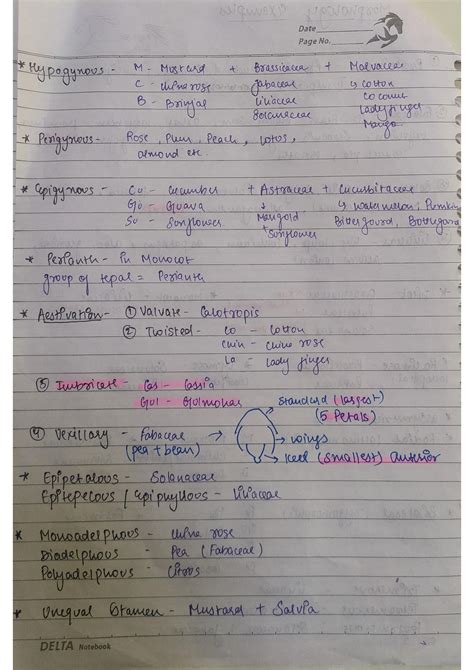 Date
Page No.
* Hypogynous - M - Mustard + Brassicacea + Malvaceae
C - China rose Fabaceae ↳ Cotton
B - Brinjal Liliaceae Coconut
Solanaceae Ladyfinger
Mango
* Perigynous - Rose, Plum, Peach, Lotus,
almond etc.
* Epigynous - Cu - Cucumber + Astraceae + Cucurbitaceae
Gu - Guava ↓ ↳ watermelon, Pumkin
Su - Sunflower Marigold Bittergourd, Bottlegourd
Sunflower
* Perianth - In Monocot
group of tepal = Perianth
* Aestivation - ① Valvate - Calotropis
② Twisted - Co - Cotton
Chin - China rose
La - Lady finger
③ Imbricate - Cas - Cassia
Gul - Gulmohar
Standard (largest)
(5 Petals)
④ Vexillary - Fabaceae → wings
(pea + bean) Keel (smallest) Anterior
* Epipetalous - Solanaceae
Epitepelous / Epiphyllous - Liliaceae
* Monoadelphous - China rose
Diadelphous - Pea (Fabaceae)
Polyadelphous - Citrus
* Unequal Stamen - Mustard + Salvia
DELTA Notebook